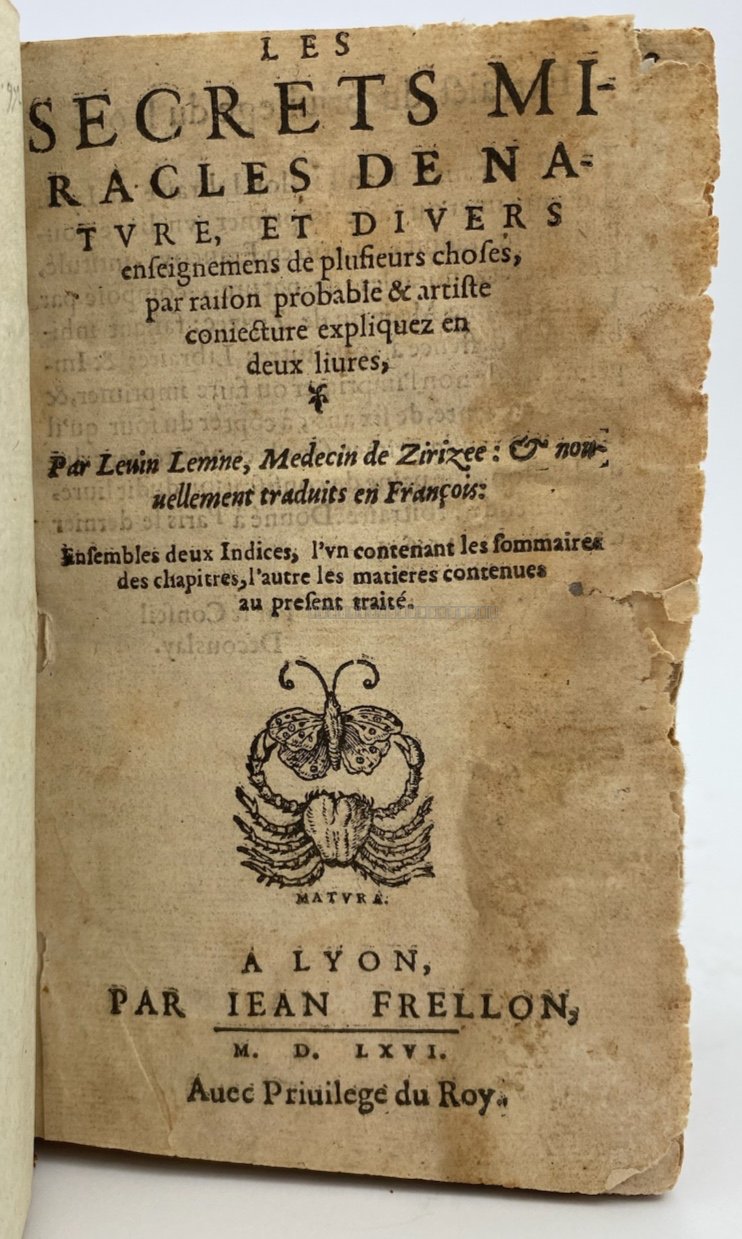 LES
SECRETS MI-
RACLES DE NA-
TVRE, ET DIVERS
enſeignemens de pluſieurs choſes,
par raiſon probable & artiſte
coniecture expliquez en
deux liures,
Par Leuin Lemne, Medecin de Zirizee: & nou-
uellement traduits en François:
Enſembles deux Indices, l'vn contenant les ſommaires
des chapitres, l'autre les matieres contenues
au preſent traité.
MATVRA.
A LYON,
PAR IEAN FRELLON,
M. D. LXVI.
Auec Priuilege du Roy.